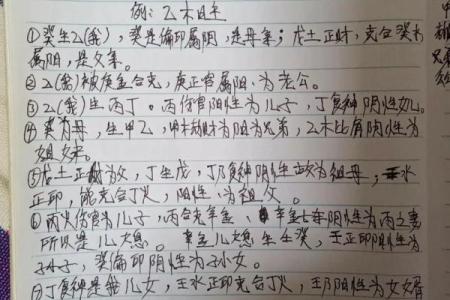 例：乙木日主
①癸生乙(我)，癸是偏印属阴，是母亲；戊土正财，克合癸为
属阳，是父亲。
②乙(我)被庚金合克，庚正官属阳，为老公。
③乙(我)生丙丁。丙伤官阳性为儿子，丁食神阴性女儿。
④癸为母，生甲乙，甲木劫财为阳为兄弟，乙木比肩阴性为
姐妹。
⑤戊土正财为父，丁生戊，丁食神阴性为祖母，壬水
正印，能克合丁火，阳性，为祖父。
⑥丙火伤官为儿子，丙合克辛金，辛金七杀阴性为丙之妻
所以是儿媳。辛金儿媳生壬癸，壬正印阳性为
孙子，癸偏印阴性为孙女。
⑦丁食神是我儿女，壬水正印克合丁火，壬阳性为女婿